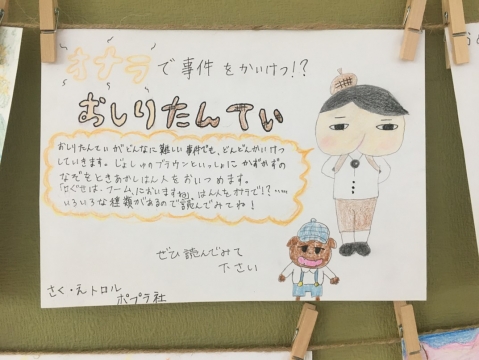 オナラで事件をかいけつ!?
おしりたんてい
おしりたんていがどんなに難しい事件でも、どんどんかいけつ
していきます。じょしゅのブラウンといっしょにかずかずの
なぞをときあかしはん人をおいつめます。
口ぐせは「フーム、においますね」はん人をオナラで!?……
いろいろな種類があるので読んでみてね!
ぜひ読んでみて
下さい
さく・えトロル
ポプラ社